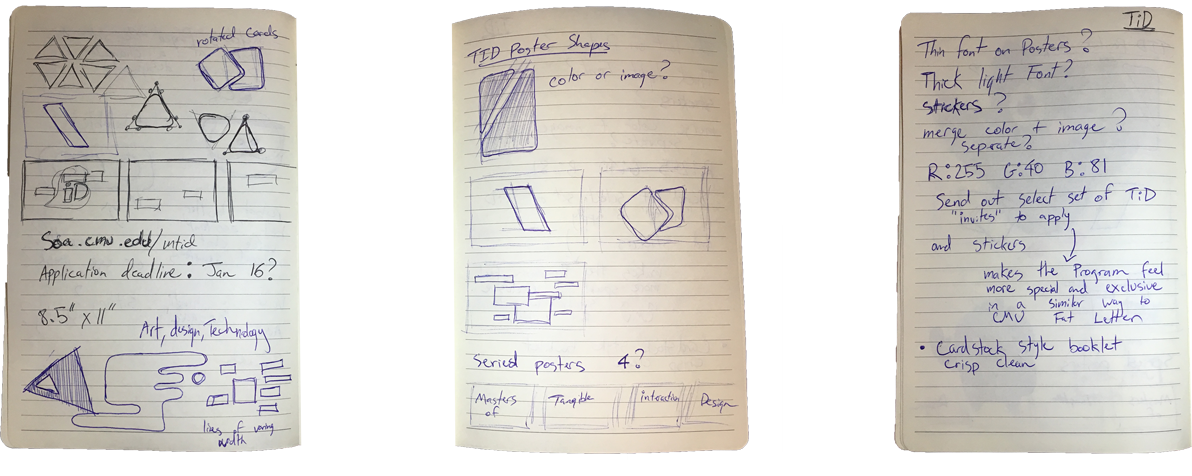 rotated Cards
TiD
Soa.cmu.edu/mtid
Application deadline: Jan 16?
8.5" x 11"
Art, design, Technology
lines of varing
width
TID Poster Shapes
color or image?
Seried posters 4?
Masters
of
Tangible
interaction
Design
TiD
Thin font on Posters?
Thick light Font?
stickers?
merge color + image?
seperate?
R:255 G:40 B:81
Send out select set of TiD
"invites" to apply
and stickers
makes the Program feel
more special and exclusive
in a similar way to
CMU Fat Letter
• Cardstock style booklet
crisp clean